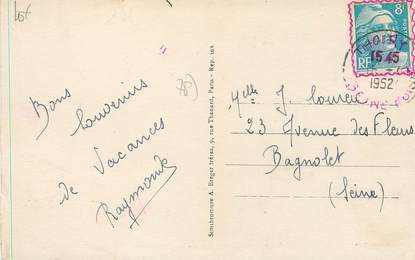 Bons
Souvenirs
de Vacances
Raymonde
(78)
Sembromuse A. Breger frères, 9, rue Thénard, Paris - Rep. int.
8F
RF
THOIRY
15 45
1952
Melle J.
23 Avenue des Fleurs
Bagnolet
(Seine)